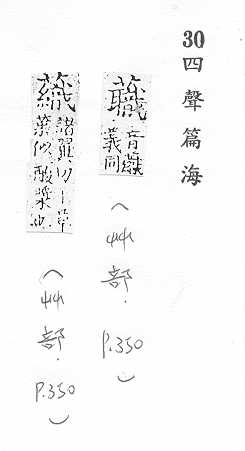 30 四聲篇海
蘵 音
義同
(艸部. P.350.)
諸翼切丨草
葉似酸漿也
(艸部. P.350)